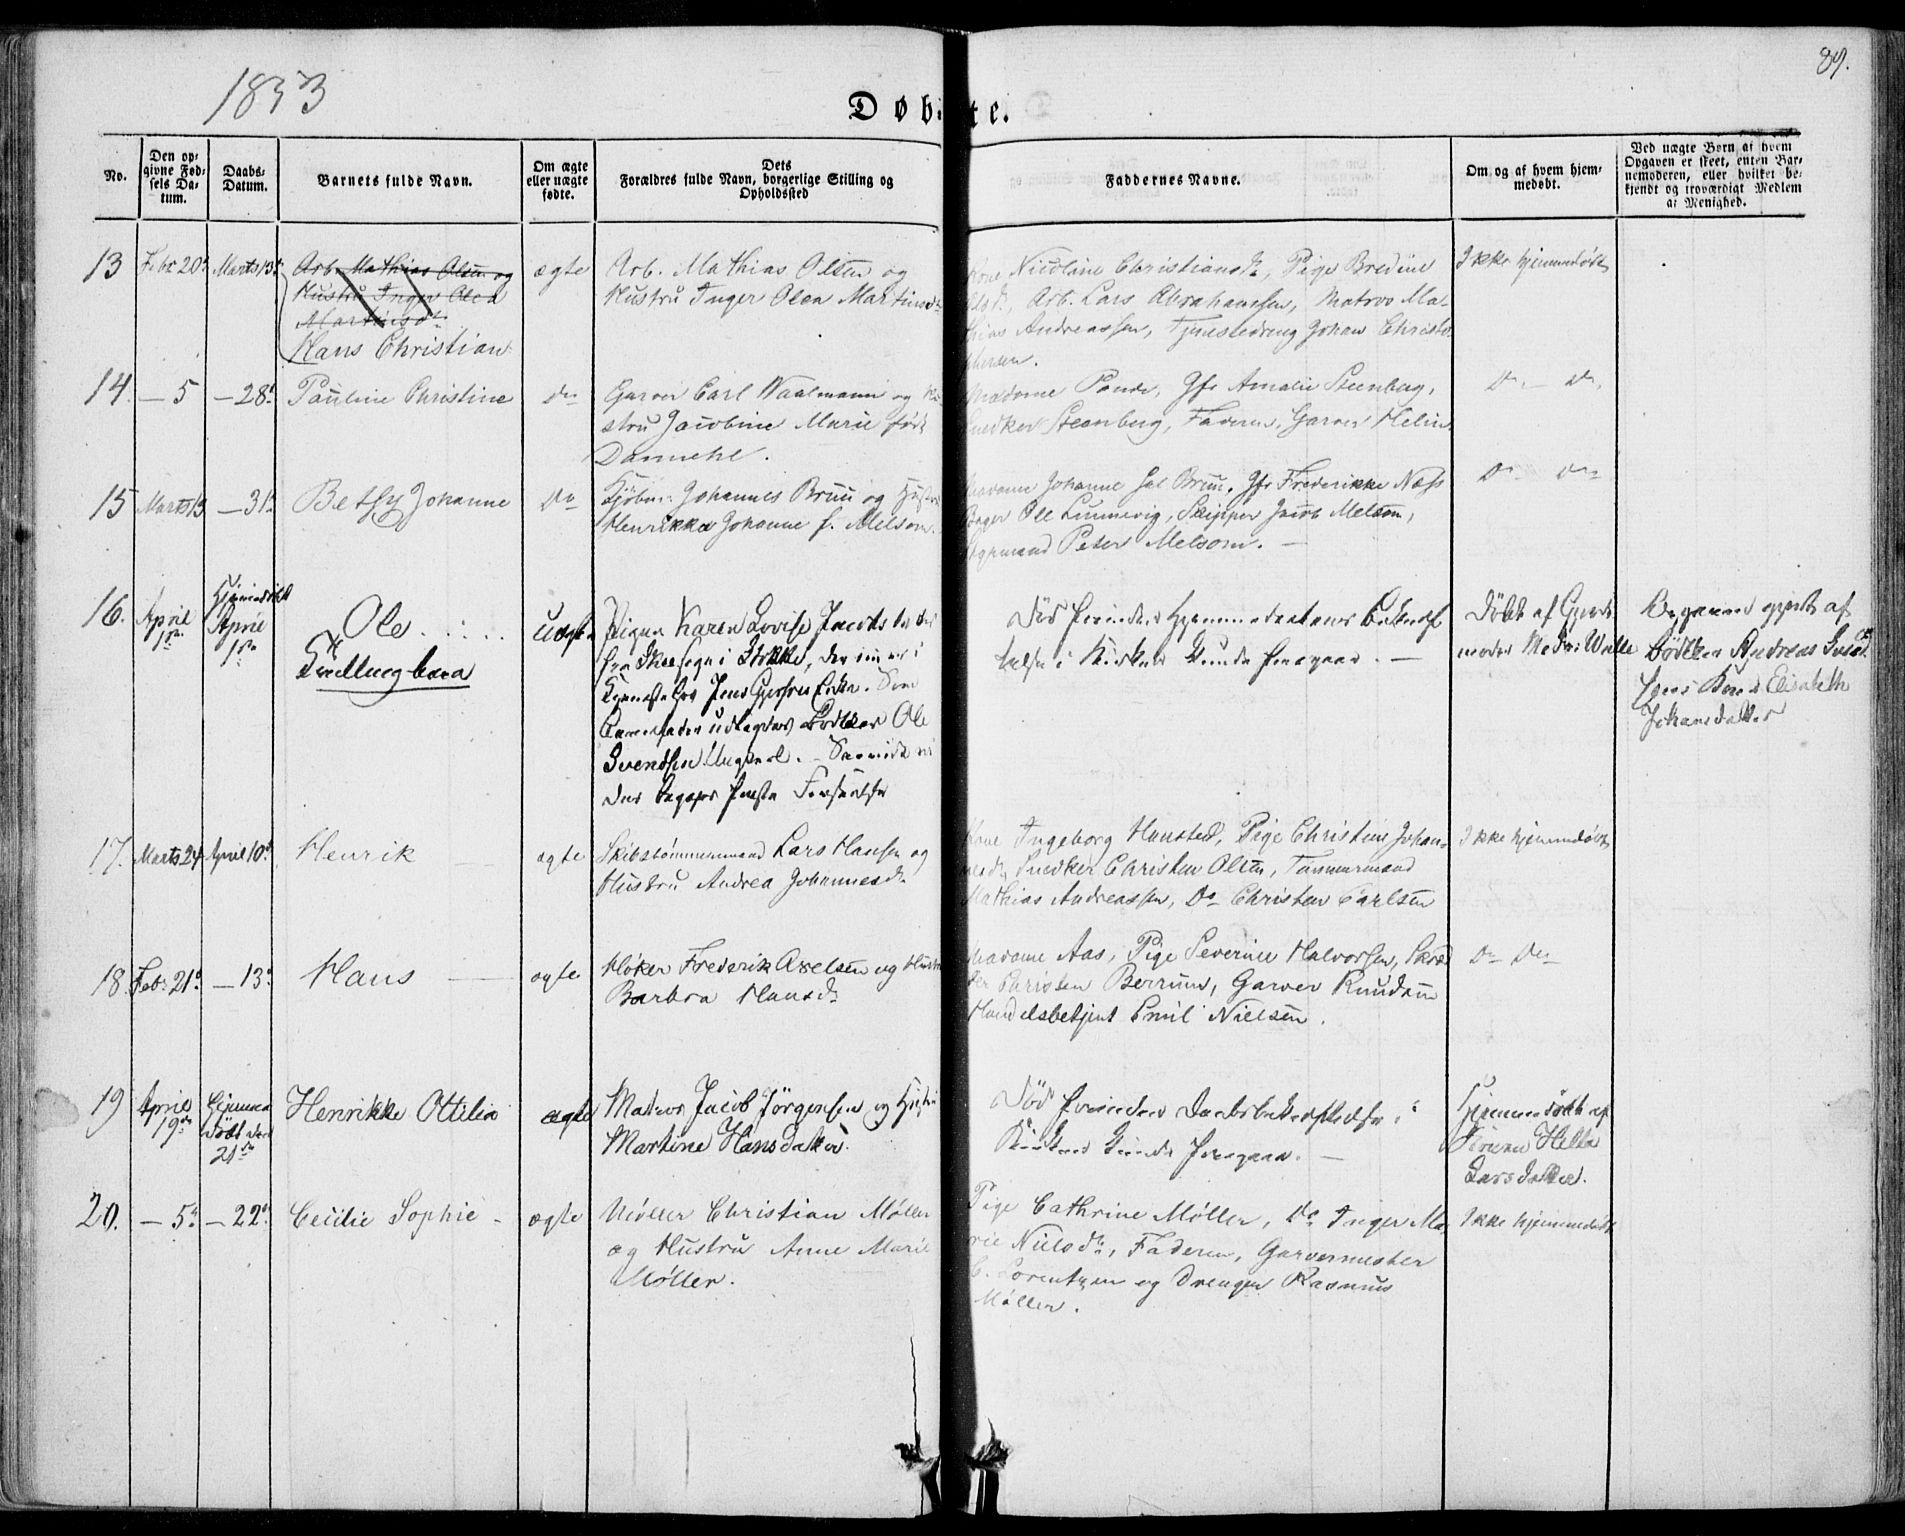 1853
89.
Døbte.
No.
Den opgivne Fødsels Datum.
Daabs-Datum.
Barnets fulde Navn.
Om ægte eller uægte fødte.
Dets Forældres fulde Navn, borgerlige Stilling og Opholdssted
Faddernes Navne.
Om og af hvem hjemmedøbt.
Ved uægte Børn, af hvem Opgaven er skeet, enten Barnemoderen, eller hvilket bekjendt og troværdigt Medlem af Menighed.
13 Febr 20 Marts 13
Arb. Mathias Olsen og
Hustru Inger Olea
Martinsd.
Hans Christian
ægte
Arb. Mathias Olsen og
Hustru Inger Olea Martinsd.
Kone Nicoline Christiansd., Pige Bredine
Olsd., Arb. Lars Abrahamsen, Matros Ma-
thias Andreassen, Tjenestedreng Johan Christo
phersen.
Ikke hjemmedøbt
14. — 5 — 28
Pauline Christine
do
Garver Carl Waalmann og Hu-
stru Jacobine Marie født
Dannehl.
Madame Pande, Jfr Amalie Steenberg,
Snedker Steenberg, Faderen, Garver Helin
Do — Do
15 Marts 13 — 31
Bethy Johanne
Do
Kjøbm. Johannes Bruu og Hustru
Henrikka Johanne f. Melsom.
Madame Johanne Sal Bruu, Jfr Frederikke Næss
Bager Ole Lunnevig, Skipper Jacob Melsom,
Styrmand Peter Melsom. —
Do Do
16. April 1ste
Hjemmedøbt
April
1ste
Ole
Tvillingbarn
uægte
Pigen Karen Lovise Jacobsdatter
fra Skeesogn i Stokke, der nu er i
Tjeneste hos Jens Enke. Som
Barnefader udlagdes Bødker Ole
Svendsen Ungkarl. — Samme er
Død forinden Hjemmedaabens Bekræf
telse i Kirken kunde foregaae. —
Døbt af Gjorde
moder Mad. Wille
Opgaven gjort af
Bødker Andreas
Kone Elisabeth
Johansdatter
17. Marts 24 April 10
Henrik
ægte
Skibstømmermand Lars Hansen og
Hustru Andrea Johannesd.
Kone Ingeborg Hansted, Pige Christine Johan-
nesd., Snedker Christen Olsen, Tømmermand
Mathias Andreassen, Do Christen Carlsen
Ikke hjemmedøbt
18. Feb. 21 — 13
Hans
ægte
Høker Frederik Axelsen og Hustru
Barbra Hansd.
Madame Aas, Pige Severine Halvorsen, Skræd
der Christen Berrum, Garver Knudsen
Handelsbetjent Emil Nielsen.
Do Do
19 April 19de
Hjemme
døbt den
21de
Henrikke Ottilia
ægte
Matros Jacob Jörgensen og Hustru
Martine Hansdatter.
Død forinden Daabsbekræftelse i
Kirken kunde foregaae. —
Hjemmedøbt af
Konen Helle
Larsdatter.
20. — 5 — 22
Cecilie Sophie
ægte
Møller Christian Møller
og Hustru Anne Marie
Møller.
Pige Cathrine Møller, Do Inger Ma
rie Nielsd., Faderen, Garvermester
C. Lorentzen og Drengen Rasmus
Møller.
Ikke hjemmedøbt